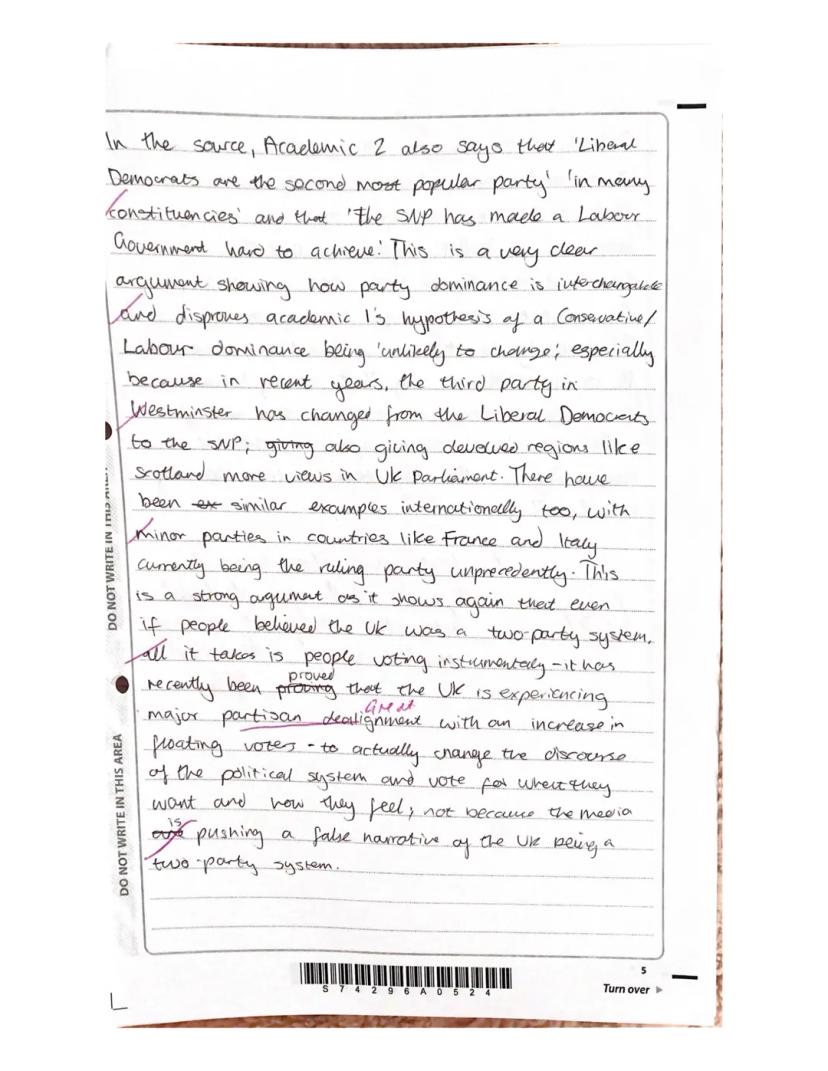 In the source, Academic 2 also says that 'Liberal
Democrats are the second most popular party' 'in many
constituencies' and that 'the SNP has made a Labour
Government hard to achieve.' This is a very clear
argument showing how party dominance is interchangable
and disproves academic 1's hypothesis of a Conservative/
Labour dominance being 'unlikely to change', especially
because in recent years, the third party in
Westminster has changed from the Liberal Democrats
to the SNP; giving also giving devolved regions like
Scotland more views in UK Parliament. There have
been ex similar examples internationally too, with
minor parties in countries like France and Italy
currently being the ruling party unprecedently. This
is a strong argument as it shows again that even
if people believed the UK was a two-party system,
all it takes is people voting instrumentally - it has
proved
recently been proving that the UK is experiencing
Great
major partisan dealignment with an increase in
floating voters - to actually change the discourse
of the political system and vote for what they
want and how they feel; not because the media
is
are pushing a false narrative of the UK being a
two-party system.
DO NOT WRITE IN THIS AREA
DO NOT WRITE IN THIS AREA
S74296A0524
5
Turn over